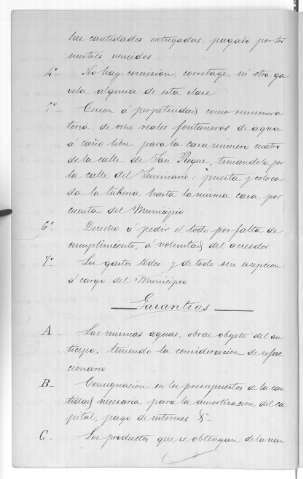 las cantidades entregadas, pagado por tri
mestres vencidos
4.ª No hay comision, corretage ni otro ga
belo alguna de esta clase
5.ª Cesion á perpetuidad como remunera
toria de dos reales fontaneros de agua
á caño libre para la casa numero cuatro
de la calle de San Roque, tomandola por
la calle del Humano; puesta y coloca
da la tuberia hasta la misma casa por
cuenta del Municipio
6.ª Derecho á pedir el todo por falta de
cumplimiento, á voluntad del acreedor
7.ª Los gastos todos y de todo sin escepcion
á cargo del Municipio
Garantías
A. Las mismas aguas, obras objeto del an
ticipo, teniendo la consideracion de refac
cionario
B. Consignacion en los presupuestos de la can
tidad necesaria para la amortizacion del ca
pital, pago de intereses &.ª
C. Los productos que se obtengan de la mis